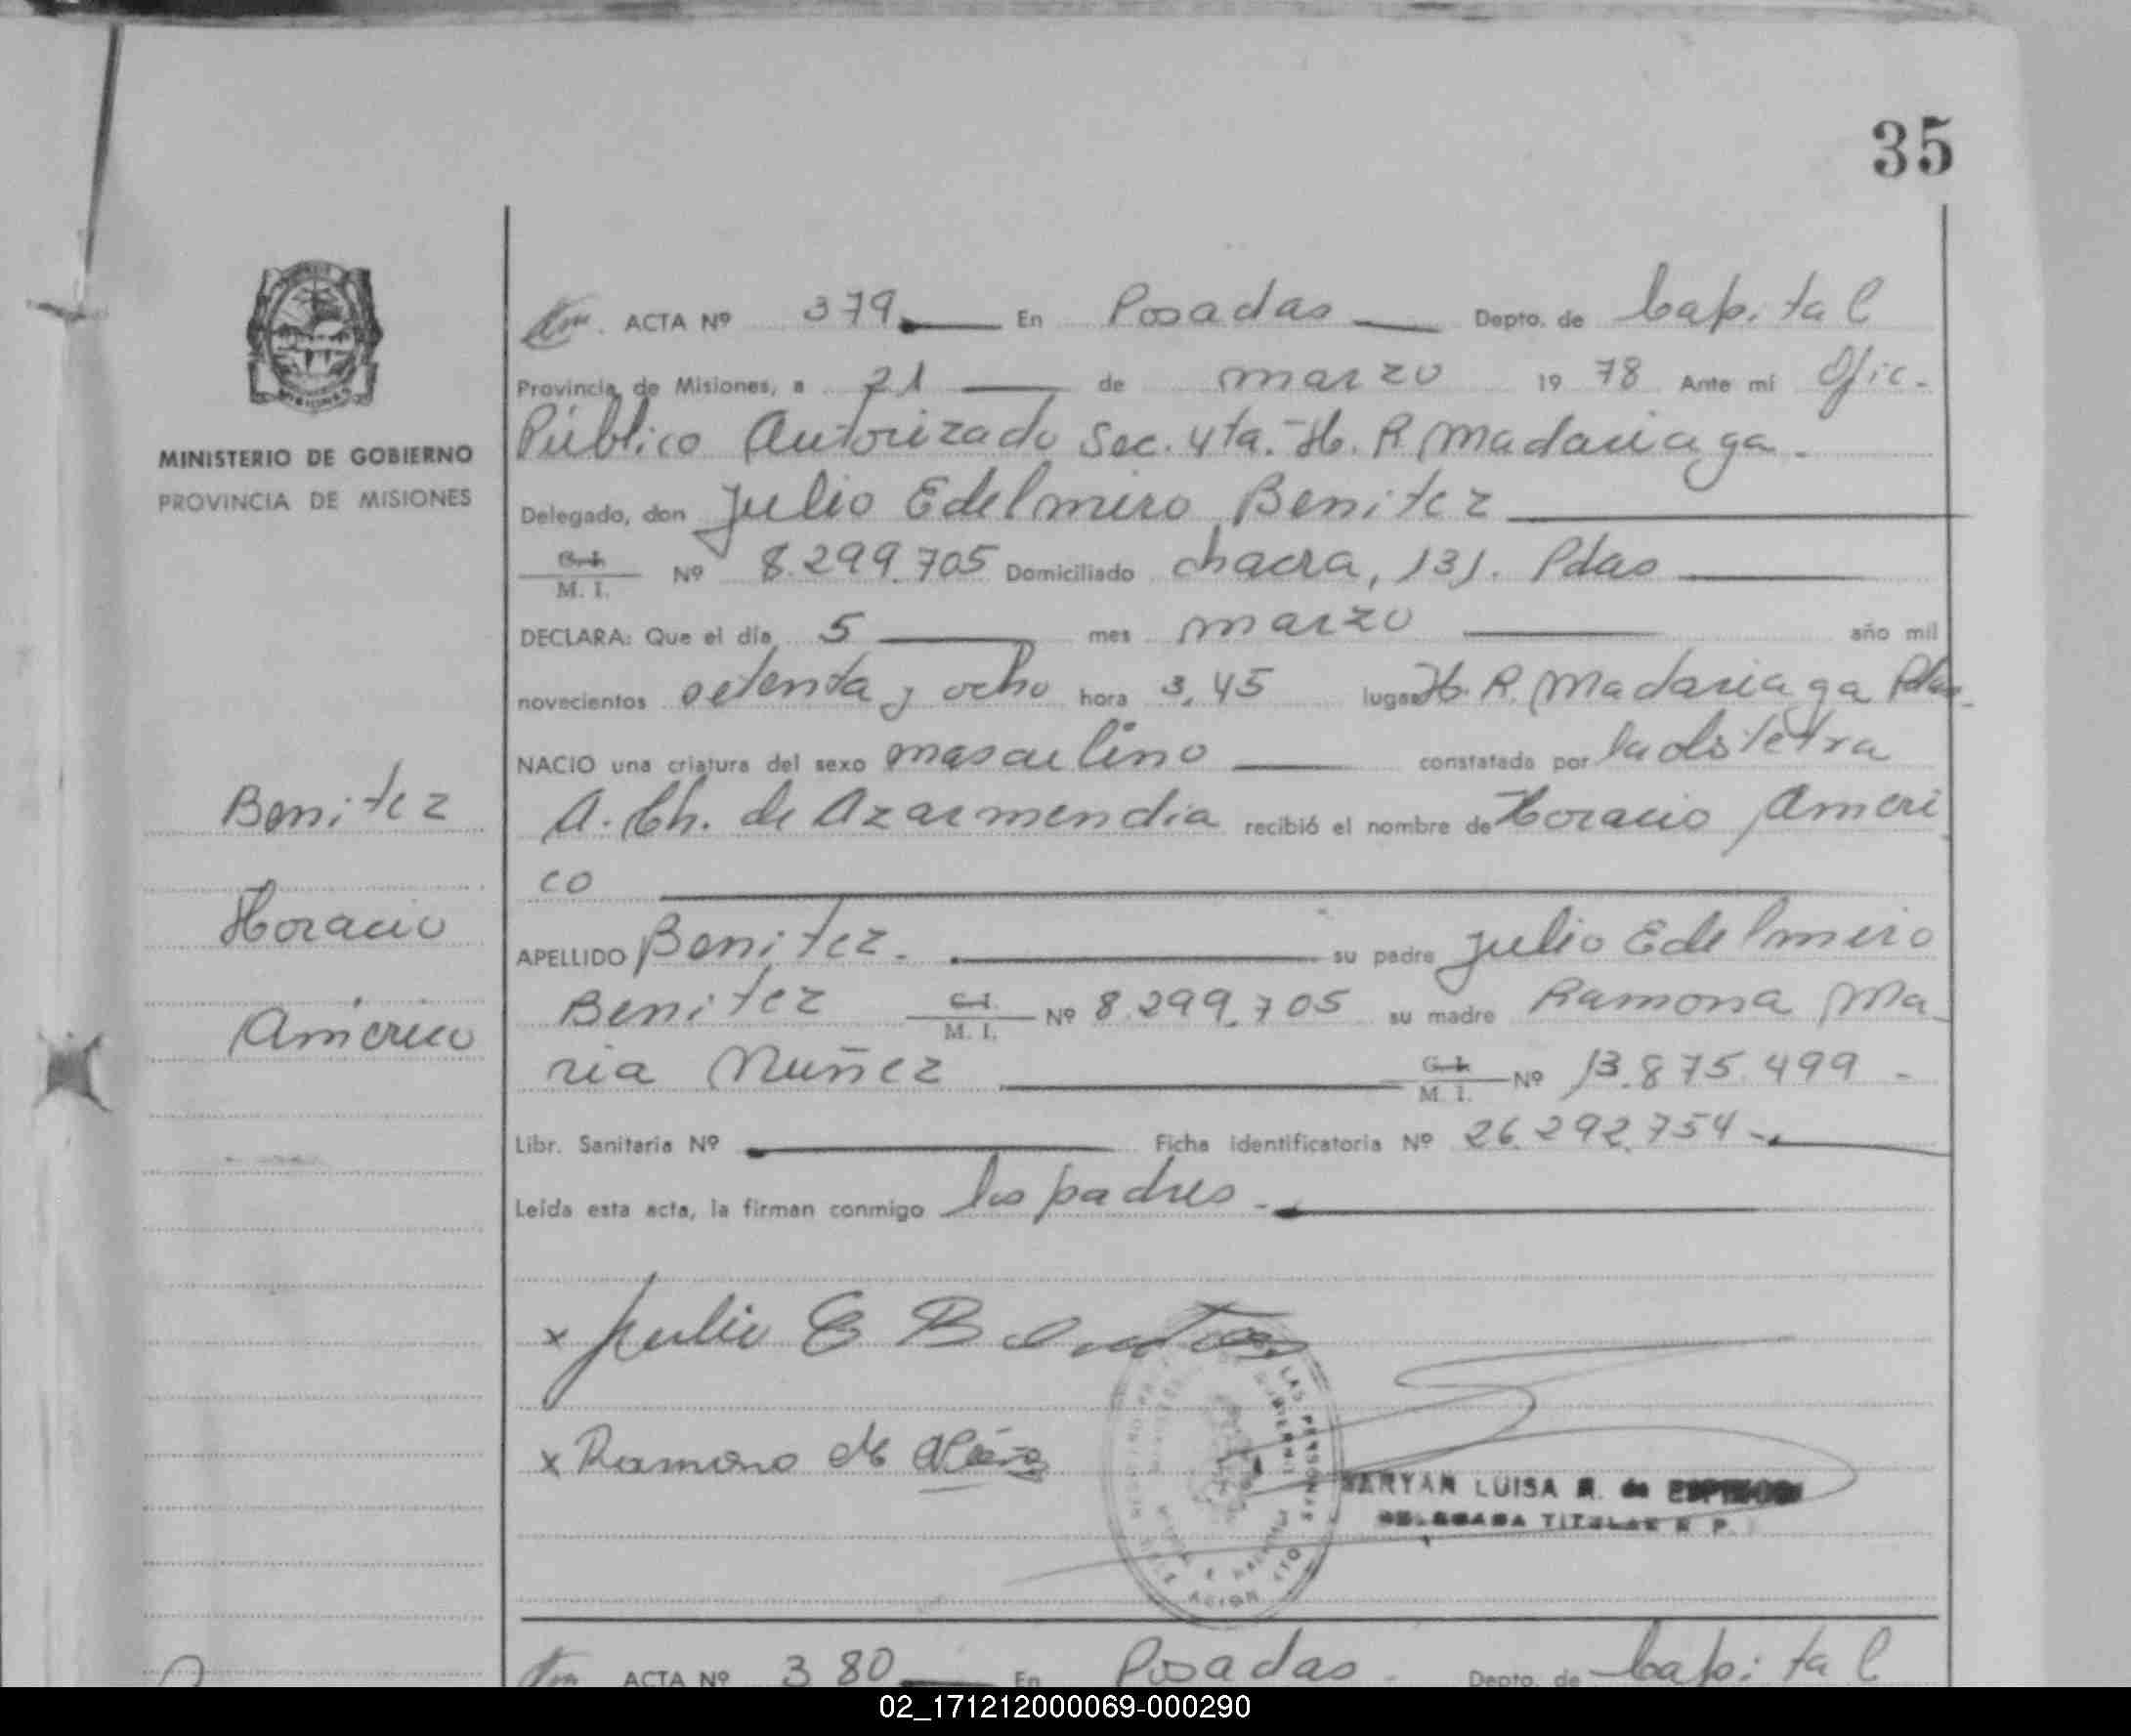 35
ACTA Nº 379 En Posadas Depto. de Capital
Provincia de Misiones, a 21 de marzo 19 78 Ante mí Ofic.
Público Autorizado Sec. 4ta. H. R. Madariaga.
MINISTERIO DE GOBIERNO
PROVINCIA DE MISIONES
Delegado, don Julio Edelmiro Benitez
C.I. M. I. Nº 8.299.705 Domiciliado chacra, 131. Pdas
DECLARA: Que el día 5 mes marzo año mil
novecientos setenta y ocho hora 3,45 lugar H. R. Madariaga Pdas
NACIO una criatura del sexo masculino constatada por la obstetra
Benitez
A. Ch. de Azarmendia recibió el nombre de Horacio Améri
co
Horacio
APELLIDO Benitez. su padre Julio Edelmiro
Benitez C.I. M. I. Nº 8.299.705 su madre Ramona Ma
Américo
ria Nuñez C.I. M. I. Nº 13.875.499 -
Libr. Sanitaria Nº Ficha identificatoria Nº 26.292.754-
Leída esta acta, la firman conmigo los padres -
x Julio E B
x Ramona
LUISA R. de
DELEGADA TITULAR R. P.
ACTA Nº 380 En Posadas - Depto. de Capital
02_171212000069-000290